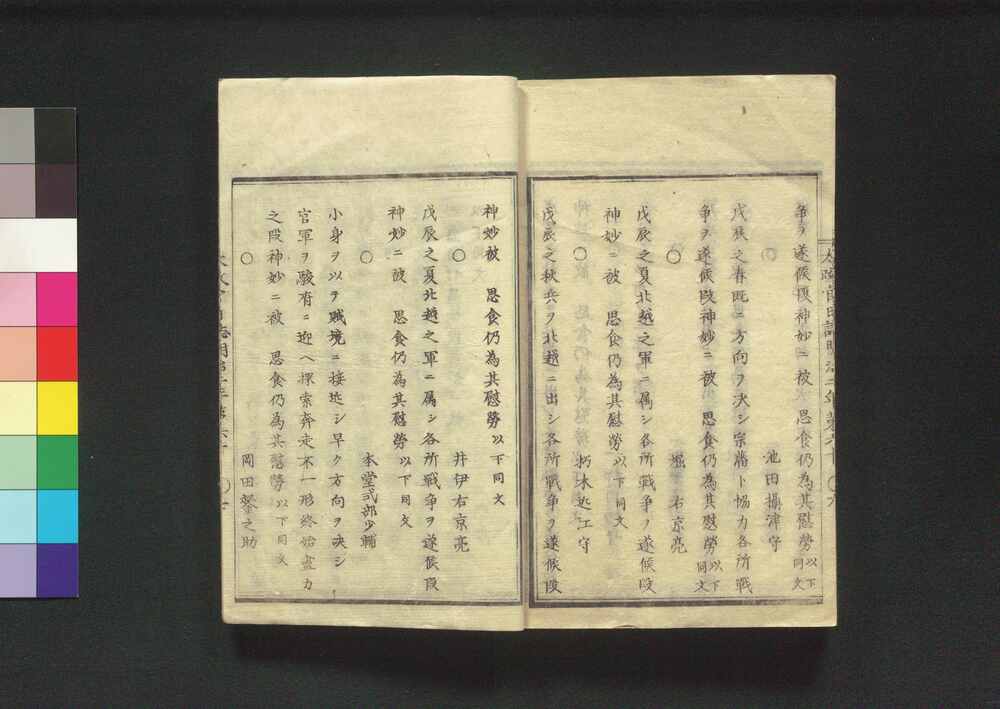 太政官日誌明治二年第六十 〇六
争ヲ遂候段神妙ニ被 思食仍為其慰勞以下同文
〇 池田攝津守
戊辰之春既ニ方向ヲ決シ宗藩ト協力各所戰
争ヲ遂候段神妙ニ被 思食仍為其慰勞以下同文
〇 堀右京亮
戊辰之夏北越之軍ニ属シ各所戰争ヲ遂候段
神妙ニ被 思食仍為其慰勞以下同文
〇 朽木近江守
戊辰之秋兵ヲ北越ニ出シ各所戰争ヲ遂候段
神妙被 思食仍為其慰勞以下同文
〇 井伊右京亮
戊辰之夏北越之軍ニ属シ各所戰争ヲ遂候段
神妙ニ被 思食仍為其慰勞以下同文
〇 本堂式部少輔
小身ヲ以テ賊境ニ接近シ早ク方向ヲ決シ
官軍ヲ駿府ニ迎ヘ探索奔走不一形終始盡力
之段神妙ニ被 思食仍為其慰勞以下同文
〇 岡田鍫之助